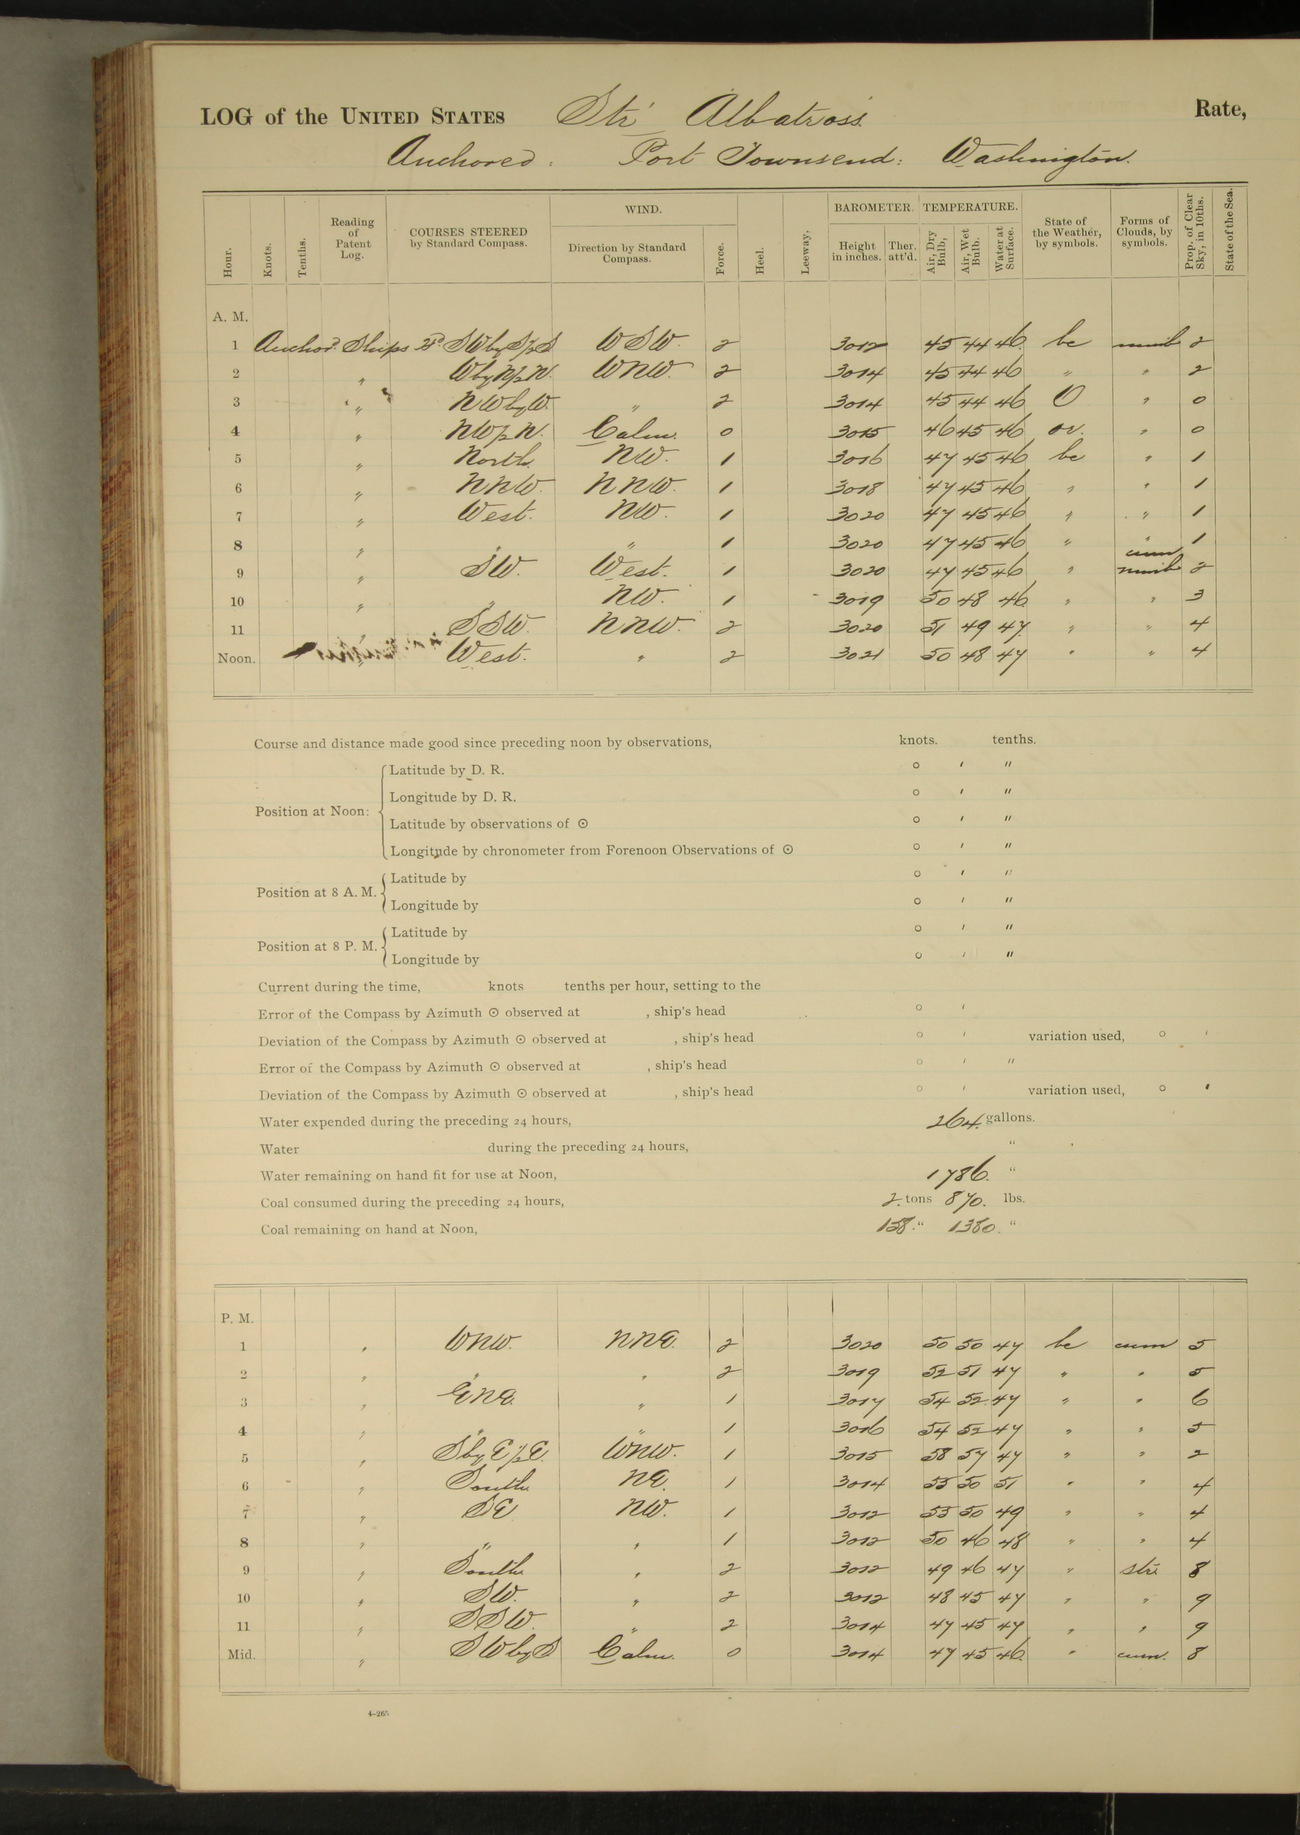 LOG of the UNITED STATES Str Albatross Rate,
Anchored. Port Townsend: Washington.
Hour. Knots. Tenths. Reading of Patent Log. COURSES STEERED by Standard Compass. WIND. Direction by Standard Compass. Force. Heel. Leeway. BAROMETER. Height in inches. Ther. att'd. TEMPERATURE. Air, Dry Bulb, Air, Wet Bulb. Water at Surface. State of the Weather, by symbols. Forms of Clouds, by symbols. Prop. of Clear Sky, in 10ths. State of the Sea.
A. M.
1 Anchor Ships Hd SWby S½S WSW. 2 3012 45 44 46 bc numb 2
2 " Wby N½N. WNW. 2 3014 45 44 46 " " 2
3 " NWbyW. " 2 3014 45 44 46 O " 0
4 " NW½N. Calm. 0 3015 46 45 46 ov. " 0
5 " North. NW. 1 3016 47 45 46 bc " 1
6 " NNW. NNW. 1 3018 47 45 46 " " 1
7 " West. NW. 1 3020 47 45 46 " " 1
8 " " " 1 3020 47 45 46 " " 1
9 " SW. West. 1 3020 47 45 46 " cum numb 2
10 " " NW. 1 3019 50 48 46 " " 3
11 SSW. NNW. 2 3020 51 49 47 " " 4
Noon. West. " 2 3021 50 48 47 " " 4
Course and distance made good since preceding noon by observations, knots. tenths.
Position at Noon: Latitude by D. R. ° ′ ″
Longitude by D. R. ° ′ ″
Latitude by observations of ⊙ ° ′ ″
Longitude by chronometer from Forenoon Observations of ⊙ ° ′ ″
Position at 8 A. M. Latitude by ° ′ ″
Longitude by ° ′ ″
Position at 8 P. M. Latitude by ° ′ ″
Longitude by ° ′ ″
Current during the time, knots tenths per hour, setting to the
Error of the Compass by Azimuth ⊙ observed at , ship's head ° ′
Deviation of the Compass by Azimuth ⊙ observed at , ship's head ° ′ variation used, ° ′
Error of the Compass by Azimuth ⊙ observed at , ship's head ° ′ ″
Deviation of the Compass by Azimuth ⊙ observed at , ship's head ° ′ variation used, ° ′
Water expended during the preceding 24 hours, 264. gallons.
Water during the preceding 24 hours, "
Water remaining on hand fit for use at Noon, 1786. "
Coal consumed during the preceding 24 hours, 2. tons 870. lbs.
Coal remaining on hand at Noon, 158. " 1380. "
P. M.
1 " WNW. NNE. 2 3020 50 50 47 bc cum 5
2 " " " 2 3019 52 51 47 " " 5
3 " ENE. " 1 3017 54 52 47 " " 6
4 " " " 1 3016 54 52 47 " " 5
5 " Sby E½E. WNW. 1 3015 58 57 47 " " 2
6 " South NE. 1 3014 55 50 51 " " 4
7 " SE NW. 1 3012 55 50 49 " " 4
8 " " " 1 3012 50 46 48 " " 4
9 " South " 2 3012 49 46 47 " str. 8
10 " SW. " 2 3012 48 45 47 " " 9
11 " SSW. " 2 3014 47 45 47 " " 9
Mid. " SWbyS Calm. 0 3014 47 45 46 " cum. 8
4–265